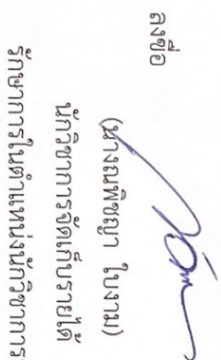 ลงชื่อ
(นางณพิชญา ใบงาม)
นักวิชาการจัดเก็บรายได้
รักษาการในตำแหน่งนักวิชาการ